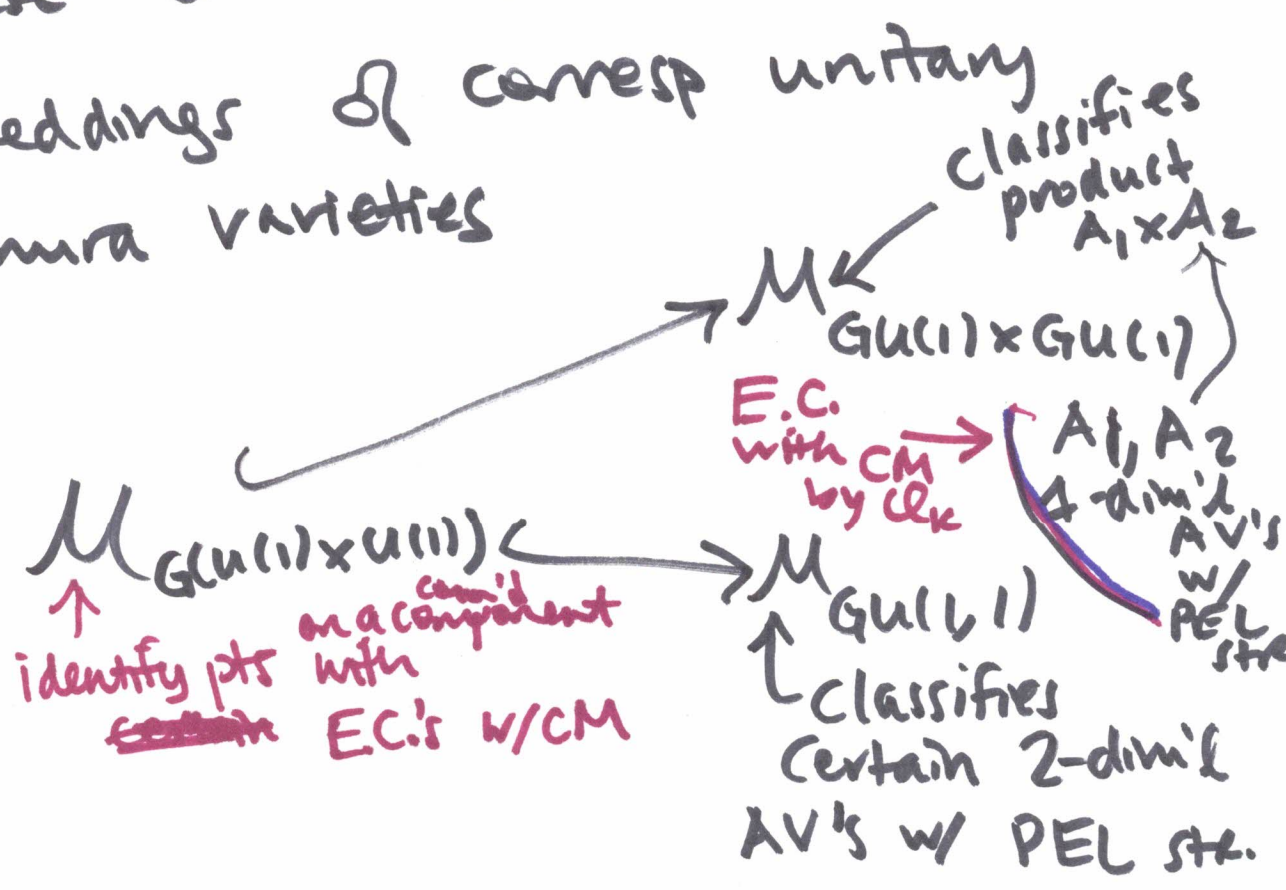 eddings of corresp unitary
mura varieties
Classifies
product
A₁×A₂
M GU(1)×GU(1)
E.C.
with CM
by O_K
A1, A2
1-dim'l
AV's
w/
PEL
str
M G(U(1)×U(1))
identify pts on a conn'd component
with
E.C.'s w/CM
M GU(1,1)
Classifies
certain 2-dim'l
AV's w/ PEL str.